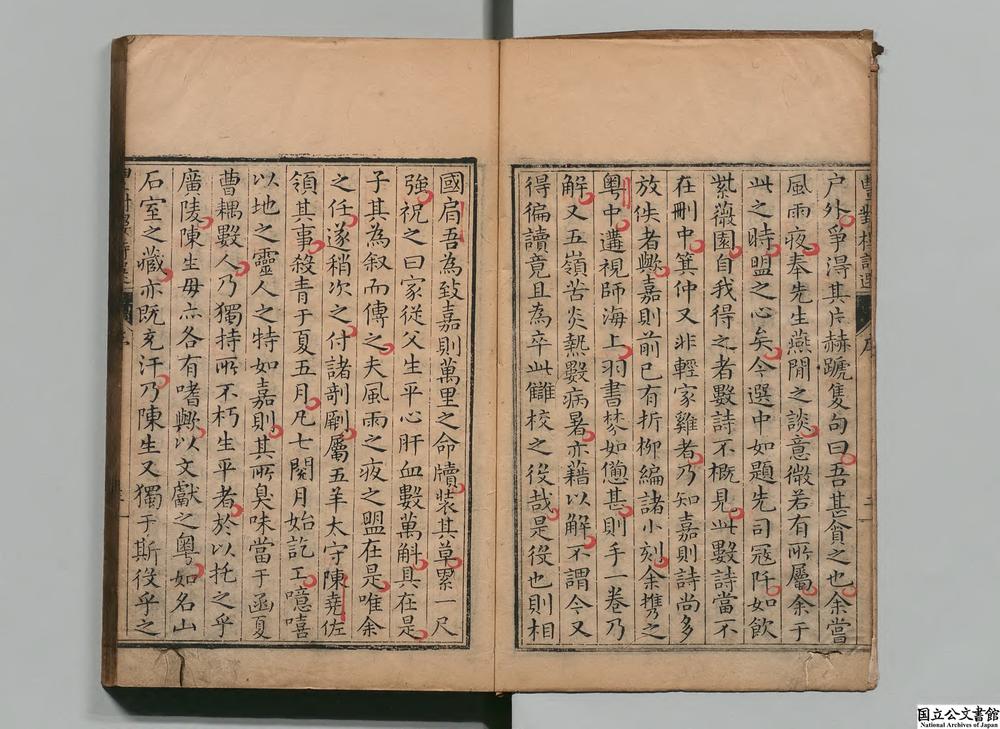 户外爭得其片赫蹏隻句曰吾甚貪之也余當
風雨夜奉先生燕閒之談意微若有所屬余于
此之時盟之心矣今選中如題先司寇阡如飲
紫薇園自我得之者數詩不概見此數詩當不
在刪中箕仲又非輕家雞者乃知嘉則詩尚多
放佚者歟嘉則前已有折柳編諸小刻余携之
粵中遘視師海上羽書棼如憊甚則手一卷乃
解又五嶺苦炎熱數病暑亦藉以解不謂今又
得徧讀竟且為卒此讎校之役哉是役也則相
國肩吾為致嘉則萬里之命牘裝其草累一尺
強祝之曰家從父生平心肝血數萬斛具在是
子其為叙而傳之夫風雨之夜之盟在是唯余
之任遂稍次之付諸剞劂屬五羊太守陳堯佐
領其事殺青于夏五月凡七閱月始訖工噫嘻
以地之靈人之特如嘉則其所臭味當于函夏
曹耦數人乃獨持所不朽生平者於以托之乎
廣陵陳生毋亦各有嗜歟以文獻之粵如名山
石室之藏亦既充汗乃陳生又獨于斯役乎之
序
国立公文書館
National Archives of Japan